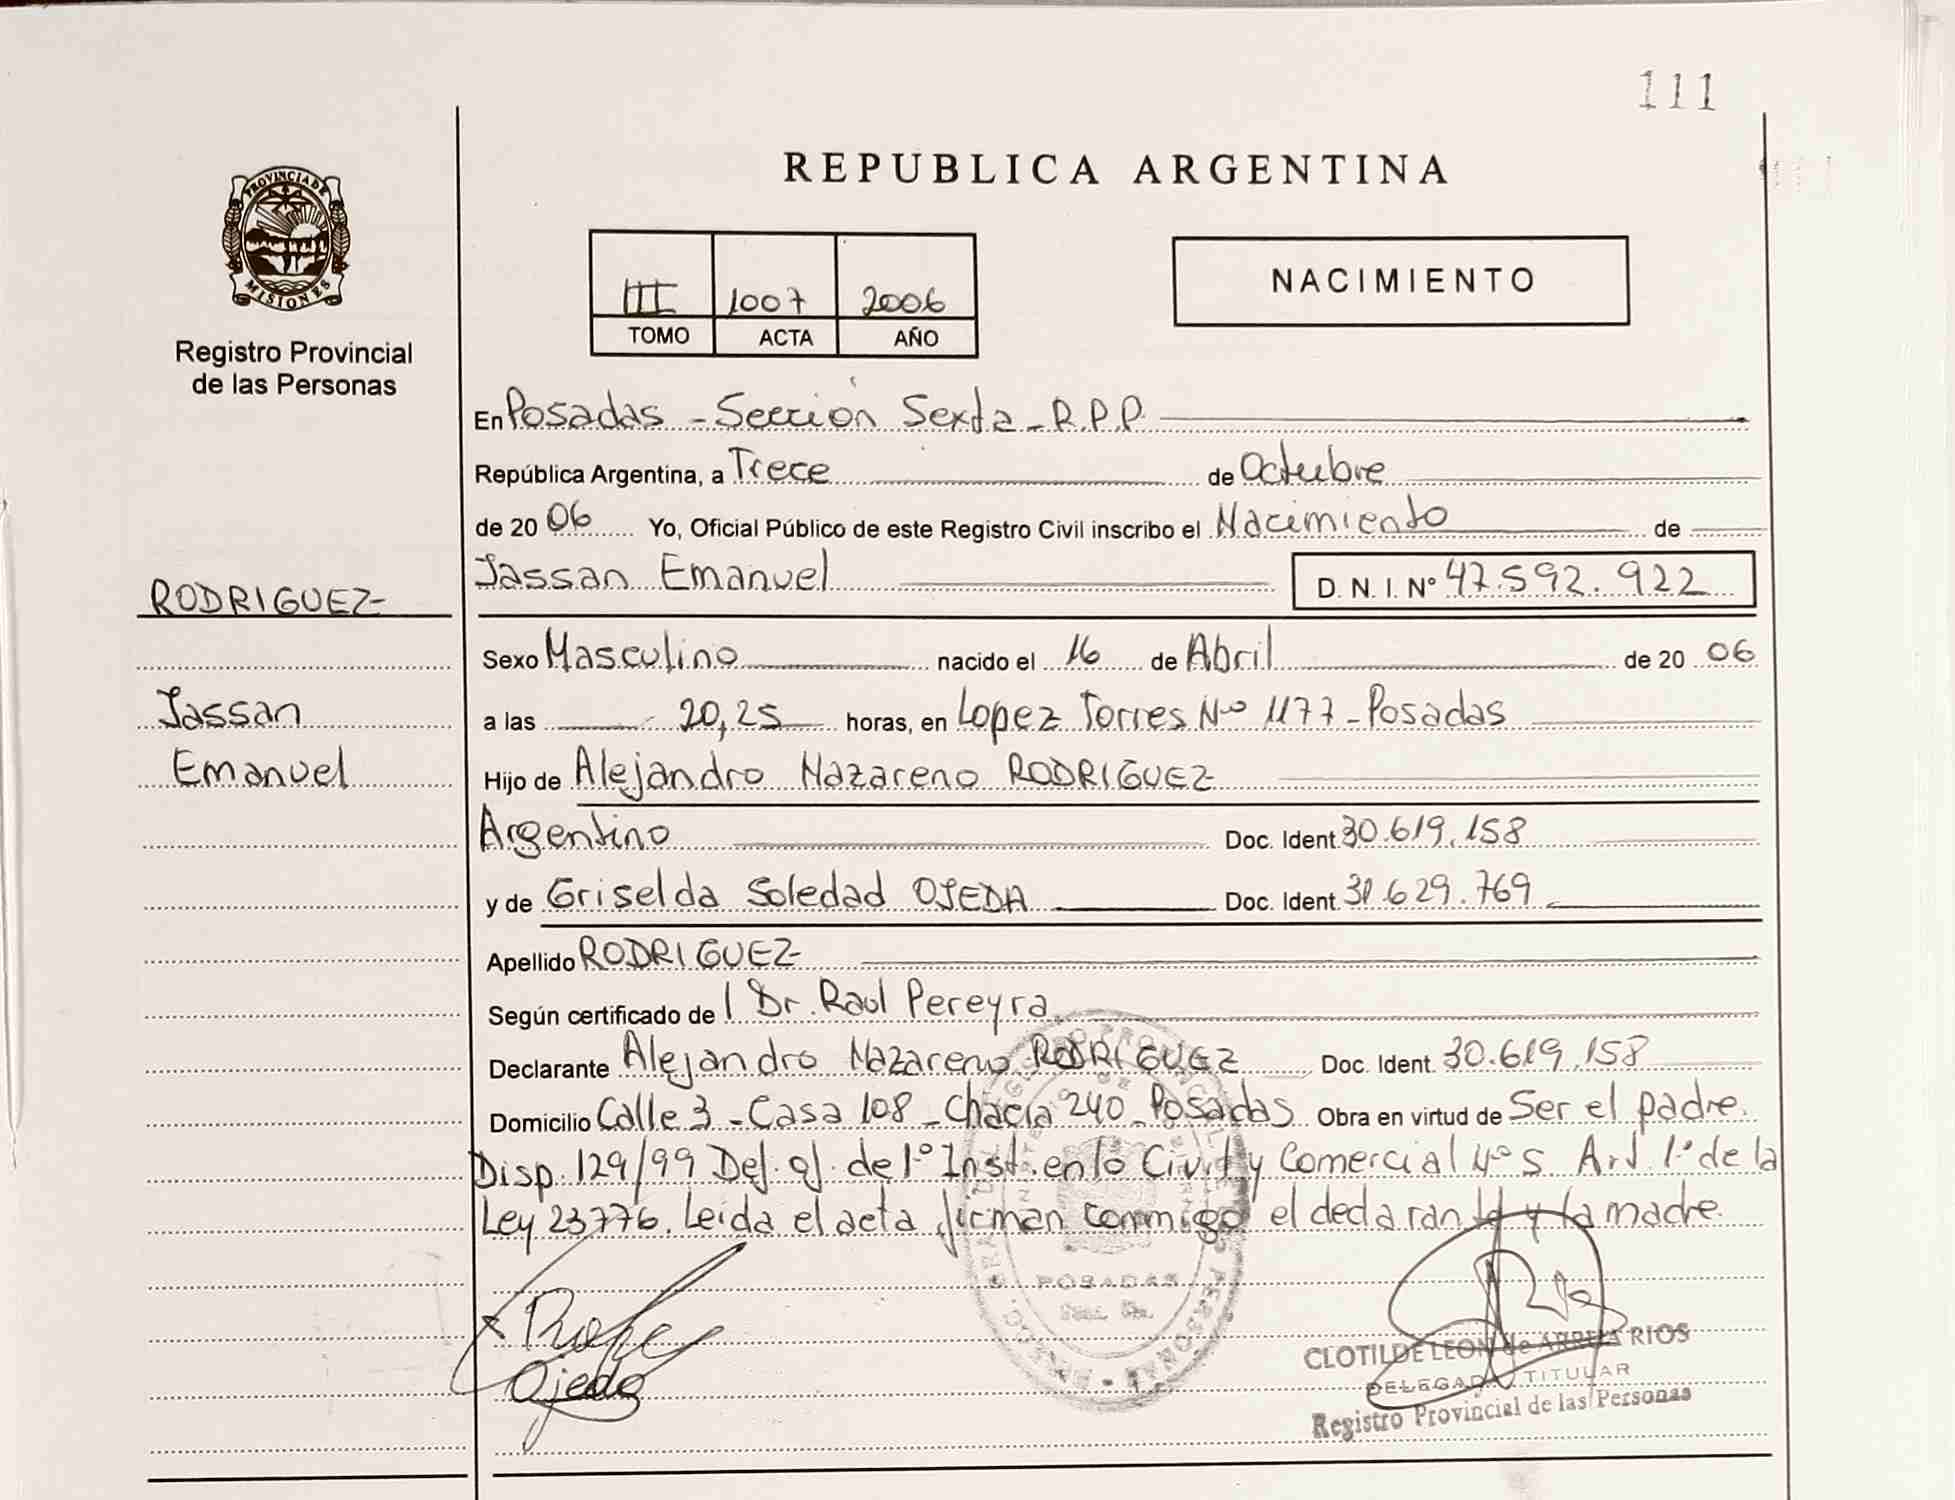 111
PROVINCIA DE
MISIONES
Registro Provincial
de las Personas
REPUBLICA ARGENTINA
III 1007 2006
TOMO ACTA AÑO
NACIMIENTO
En Posadas - Sección Sexta - R.P.P.
República Argentina, a Trece de Octubre
de 20 06 Yo, Oficial Público de este Registro Civil inscribo el Nacimiento de
Jassan Emanuel D. N. I. Nº 47.592.922
RODRIGUEZ-
Sexo Masculino nacido el 16 de Abril de 20 06
Jassan
a las 20,25 horas, en Lopez Torres Nº 1177 - Posadas
Emanuel
Hijo de Alejandro Nazareno RODRIGUEZ
Argentino Doc. Ident. 30.619.158
y de Griselda Soledad OJEDA Doc. Ident. 31.629.769
Apellido RODRIGUEZ
Según certificado de l Dr. Raul Pereyra
Declarante Alejandro Nazareno RODRIGUEZ Doc. Ident. 30.619.158
Domicilio Calle 3 - Casa 108 - Chacra 240 - Posadas Obra en virtud de Ser el padre.
Disp. 129/99 Def. of. de 1º Inst. en lo Civil y Comercial 4º S Art. 1º de la
Ley 23776. Leida el acta firman conmigo el declarante y la madre.
POSADAS
Ojeda
CLOTILDE LEON de ARRUA RIOS
DELEGADA TITULAR
Registro Provincial de las Personas